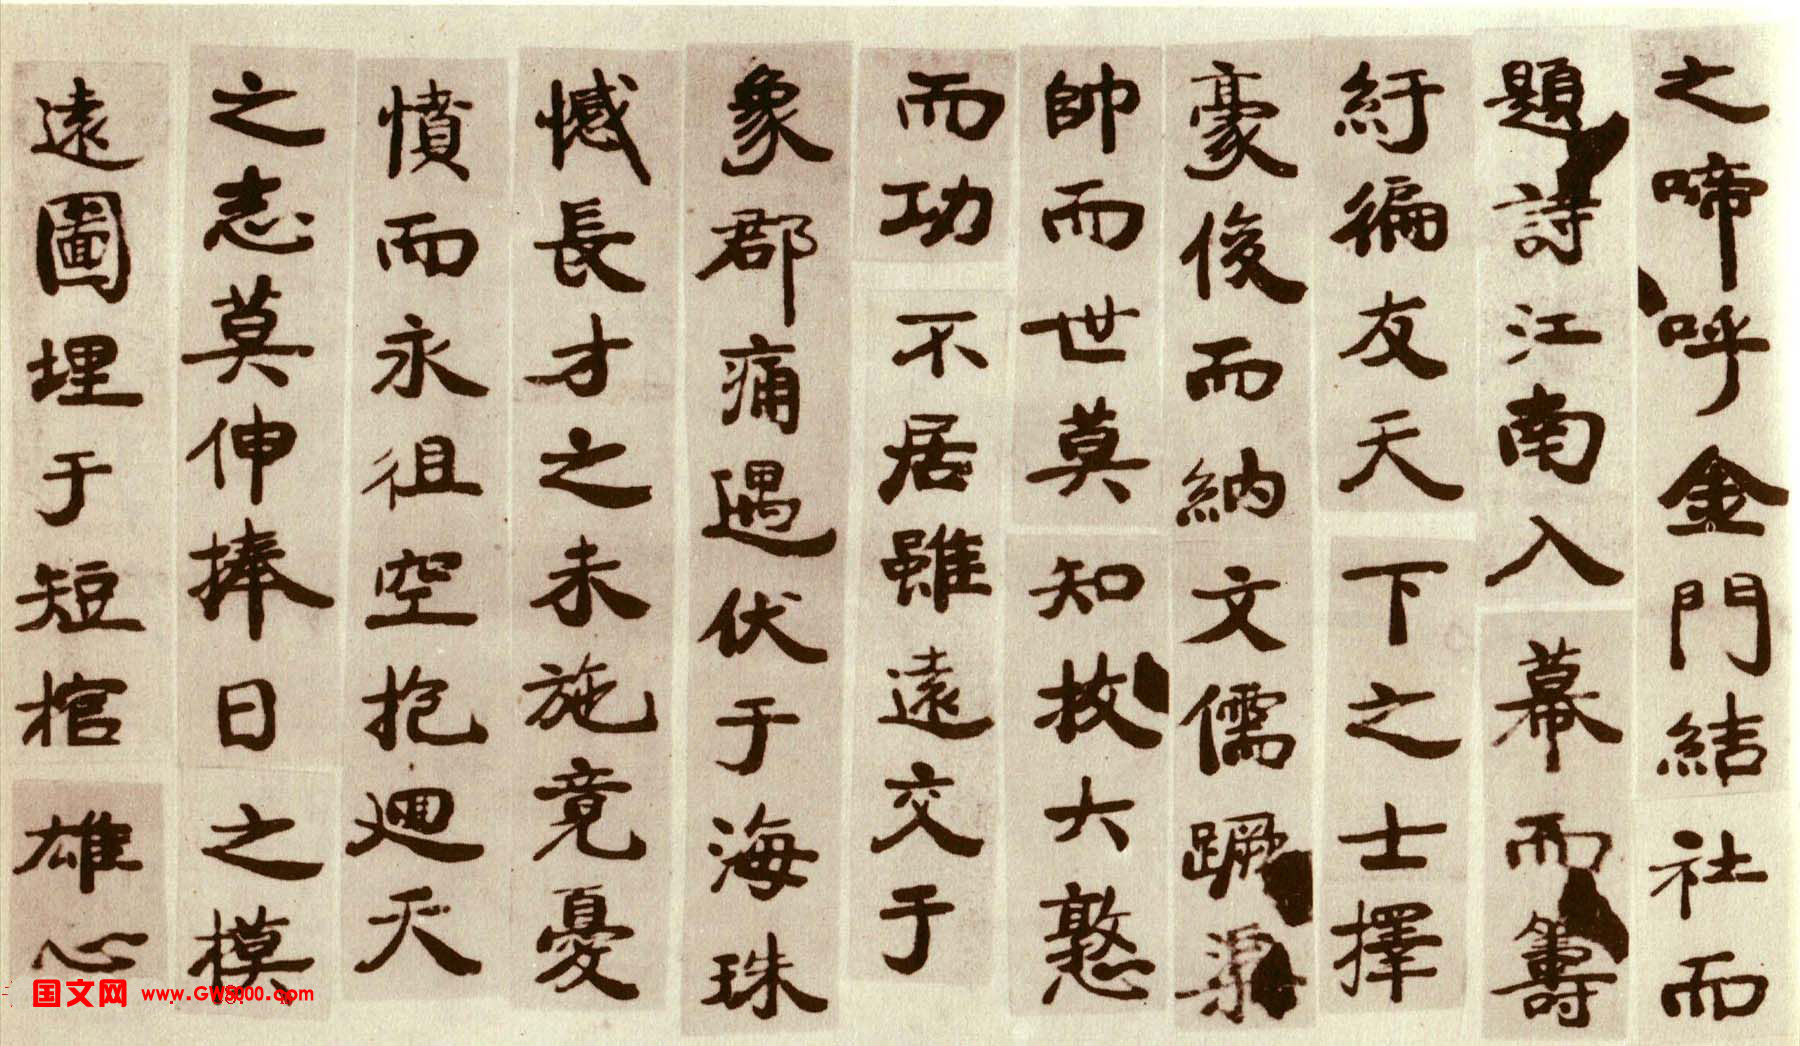 之啼呼金門結社而
題詩江南入幕而籌
紆徧友天下之士擇
豪俊而納文儒蹶渠
帥而世莫知拔大憝
而功不居雖遠交于
象郡痛遇伏于海珠
憾長才之未施竟憂
憤而永徂空抱廻天
之志莫伸捧日之模
遠圖埋于短棺雄心
国文网 www.GW5000.com